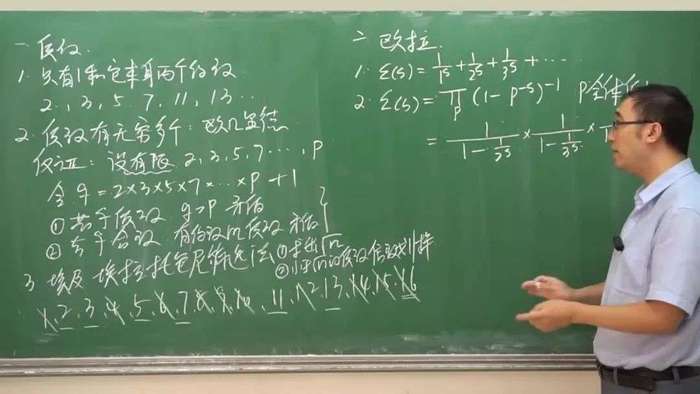 一 质数.
1. 只有1和它本身两个约数
2, 3, 5, 7, 11, 13 ...
2. 质数有无穷多个: 欧几里德
反证: 设有限 2, 3, 5, 7 ..., p
令 q = 2×3×5×7×...×p + 1
① 若q质数 q>p 矛盾
② 若q合数 有约数 质数 矛盾
3. 埃及 埃拉托色尼筛选法 ①求出√n
② 的质数 倍数划掉
1, 2, 3, 4, 5, 6, 7, 8, 9, 10, 11, 12, 13, 14, 15, 16
二 欧拉.
1. Σ(s) = 1/1^s + 1/2^s + 1/3^s + ...
2. Σ(s) = ∏_p (1 - p^-s)^-1 p全体质
= 1/(1 - 1/2^s) × 1/(1 - 1/3^s) ×